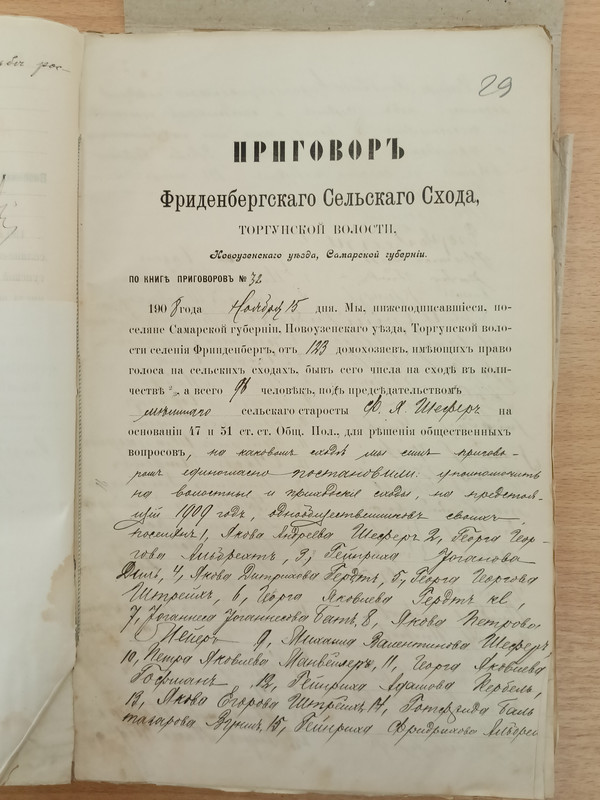 ба рос-
29
ПРИГОВОРЪ
Фриденбергскаго Сельскаго Схода,
ТОРГУНСКОЙ ВОЛОСТИ,
Новоузенскаго уѣзда, Самарской губерніи.
ПО КНИГѢ ПРИГОВОРОВЪ № 32
1908 года Ноября 15 дня. Мы, нижеподписавшіеся, по-
селяне Самарской губерніи, Новоузенскаго уѣзда, Торгунской воло-
сти селенія Фринденбергъ, отъ 123 домохозяевъ, имѣющихъ право
голоса на сельскихъ сходахъ, бывъ сего числа на сходѣ въ коли-
чествѣ ²/₃, а всего 96 человѣкъ, подъ предсѣдательствомъ
мѣстнаго сельскаго старосты Ф. Я. Шеферъ на
основаніи 47 и 51 ст. ст. Общ. Пол., для рѣшенія общественныхъ
вопросовъ, на каковомъ сходѣ мы симъ пригово-
ромъ единогласно постановили: уполномочить
на волостные и приходскіе сходы, на предстоя-
щій 1909 годъ, однообщественниковъ своихъ,
поселянъ 1, Якова Андреева Шеферъ 2, Георга Геор-
гова Альбрехтъ, 3, Гейнриха Іоганова
Диль, 4, Якова Дитрихова Гердтъ, 5, Георга Георгова
Штрейхъ, 6, Георга Яковлева Гердтъ
7, Іоганнеса Іоганнесова Батъ, 8, Якова Петрова
Мейеръ 9, Михаила Валентинова Шеферъ,
10, Петра Яковлева Манвейлеръ, 11, Георга Яковлева
Гофманъ, 12, Гейнриха Адамова Кербель,
13, Якова Егорова Штрейхъ, 14, Готфрида Баль-
тазарова 15, Гейнриха Фридрихова Альбре